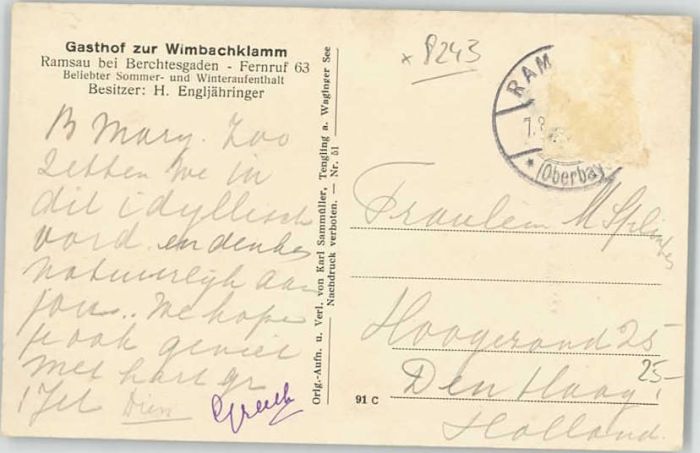 Gasthof zur Wimbachklamm
Ramsau bei Berchtesgaden - Fernruf 63
Beliebter Sommer- und Winteraufenthalt
Besitzer: H. Engljähringer
B Mary. Zoo
zitten we in
dit idyllisch
oord en denken
natuurlijk aan
jou.. We hopen
je ook geniet
met hart gr
Dien
Orig.-Aufn. u. Verl. von Karl Sammüller, Tengling a. Waginger See
Nachdruck verboten. — Nr. 51
x 8243
RAM
7.8
* (Oberbay.
Fraulein M
Hoogezand 25
Den Haag
25
Holland.
91 C